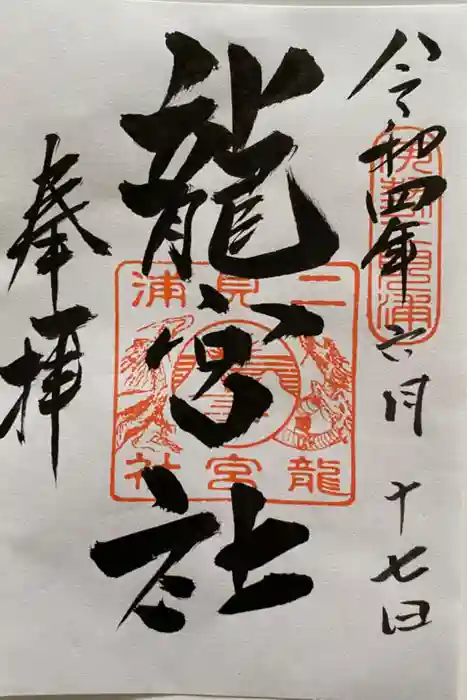 令和四年六月十七日
伊勢二見浦
龍宮社
二見浦
龍宮社
奉拝